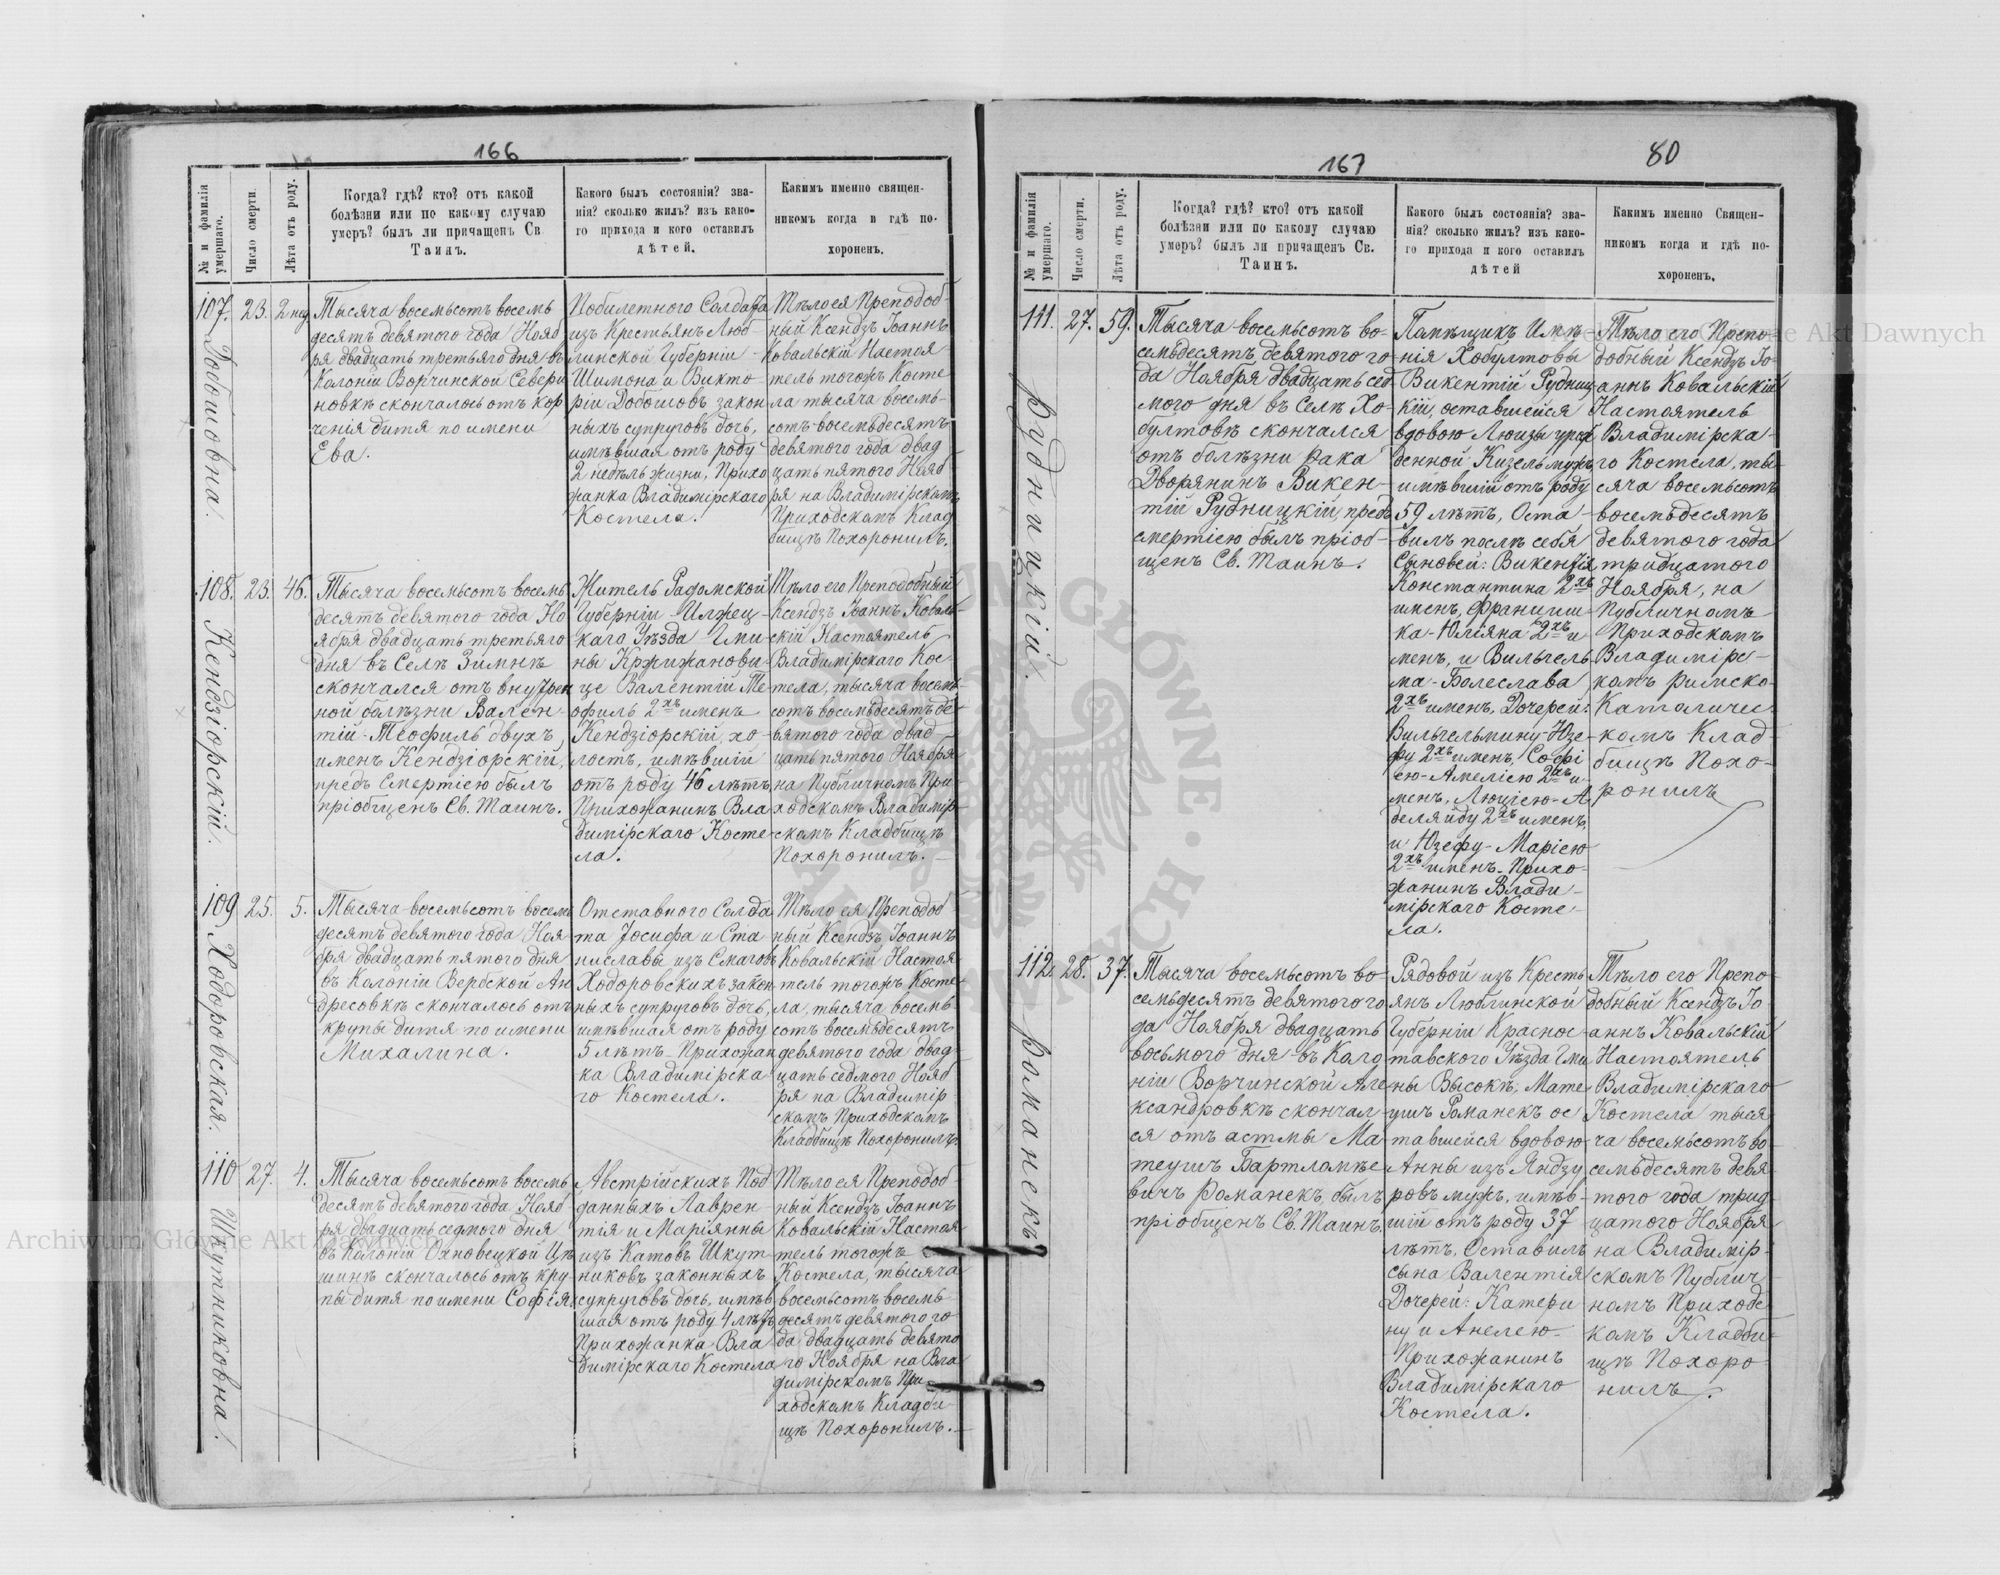 166
№ и фамилія умершаго.
Число смерти.
Лѣта отъ роду.
Когда? гдѣ? кто? отъ какой
болѣзни или по какому случаю
умеръ? былъ ли причащенъ Св.
Таинъ.
Какого былъ состоянія? зва-
нія? сколько жилъ? изъ како-
го прихода и кого оставилъ
дѣтей.
Какимъ именно священ-
никомъ когда и гдѣ по-
хороненъ.
107.
Добошовна.
23.
2 нед
Тысяча восемьсотъ восемь
десятъ девятого года Нояб
ря двадцать третьяго дня въ
Колоніи Ворчинской Севери
новкѣ скончалось отъ кор
ченія дитя по имени
Ева.
Побилетного Солдата
изъ Крестьянъ Люб-
линской Губерніи
Шимона и Викто-
ріи Добошовъ закон
ныхъ супруговъ дочь,
имѣвшая отъ роду
2 недѣль жизни, Прихо
жанка Владимірскаго
Костела.
Тѣло ея Преподоб-
ный Ксендзъ Іоаннъ
Ковальскій Настоя
тель тогожъ Косте
ла тысяча восемь-
сотъ восемьдесятъ
девятого года двад
цать пятого Нояб
ря на Владимірскомъ
Приходскомъ Клад
бищѣ Похоронилъ.
108.
Кендзіорскій.
23.
46.
Тысяча восемьсотъ восемь
десятъ девятого года Но
ября двадцать третьяго
дня въ Селѣ Зимнѣ
скончался отъ внутрен
ной болѣзни Вален-
тій-Теофиль двухъ
именъ Кендзіорскій,
предъ Смертію былъ
пріобщенъ Св. Таинъ.
Житель Радомской
Губерніи Илжец-
каго Уѣзда Гми
ны Кржижанови-
це Валентій Те-
офиль 2хъ именъ
Кендзіорскій, хо-
лостъ, имѣвшій
отъ роду 46 лѣтъ,
Прихожанинъ Вла
димірскаго Косте-
ла.
Тѣло его Преподобный
Ксендзъ Іоаннъ Коваль-
скій Настоятель
Владимірскаго Кос-
тела, тысяча восемь-
сотъ восемьдесятъ де-
вятого года двад
цать пятого Ноября
на Публичномъ При-
ходскомъ Владимір-
скомъ Кладбищѣ
Похоронилъ.
109
Ходоровская.
25.
5.
Тысяча восемьсотъ восемь
десятъ девятого года Ноя
бря двадцать пятого дня
въ Колоніи Вербской Ан
дресовкѣ скончалось отъ
крупы дитя по имени
Михалина.
Отставного Солда
та Іосифа и Ста-
ниславы изъ Смаговъ
Ходоровскихъ закон-
ныхъ супруговъ дочь,
имѣвшая отъ роду
5 лѣтъ. Прихожан
ка Владимірска-
го Костела.
Тѣло ея Преподоб
ный Ксендзъ Іоаннъ
Ковальскій Настоя
тель тогожъ Косте
ла, тысяча восемь-
сотъ восемьдесятъ
девятого года двад
цать седмого Нояб
ря на Владимір
скомъ Приходскомъ
Кладбищѣ Похоронилъ.
110
Шкутниковна.
27.
4.
Тысяча восемьсотъ восемь
десятъ девятого года Нояб
ря двадцать седмого дня
въ Колоніи Охновецкой Цѣ
шинѣ скончалось отъ кру-
пы дитя по имени Софія.
Австрійскихъ Под
данныхъ Лаврен-
тія и Маріянны
изъ Катовъ Шкут-
никовъ законныхъ
супруговъ дочь, имѣв
шая отъ роду 4 лѣтъ
Прихожанка Вла
димірскаго Костела
Тѣло ея Преподоб-
ный Ксендзъ Іоаннъ
Ковальскій Настоя
тель тогожъ
Костела, тысяча
восемьсотъ восемь-
десятъ девятого го
да двадцать девято
го Ноября на Вла
димірскомъ При-
ходскомъ Кладби-
щѣ Похоронилъ.
167
80
№ и фамилія умершаго.
Число смерти.
Лѣта отъ роду.
Когда? гдѣ? кто? отъ какой
болѣзни или по какому случаю
умеръ? былъ ли причащенъ Св.
Таинъ.
Какого былъ состоянія? зва-
нія? сколько жилъ? изъ како-
го прихода и кого оставилъ
дѣтей
Какимъ именно Священ-
никомъ когда и гдѣ по-
хороненъ.
111.
Рудницкій.
27.
59.
Тысяча восемьсотъ во-
семьдесятъ девятого го-
да Ноября двадцать сед
мого дня въ Селѣ Хо-
бултовѣ скончался
отъ болѣзни рака
Дворянинъ Викен-
тій Рудницкій, предъ
смертіею былъ пріоб-
щенъ Св. Таинъ.
Помѣщикъ Имѣ
нія Хобултовы
Викентій Рудниц
кій, оставшейся
вдовою Люизы урож
денной Кизель мужъ,
имѣвшій отъ роду
59 лѣтъ, Оста-
вилъ послѣ себя
Сыновей: Викентія
Константина 2хъ
именъ, Францыш
ка-Юліяна 2хъ и-
менъ, и Вильгель
ма-Болеслава
2хъ именъ, Дочерей:
Вильгельмину-Юзе-
фу 2хъ именъ, Софі
ею-Амеліею 2хъ и-
менъ, Люціею-А
деляйду 2хъ именъ
и Юзефу-Маріею
2хъ именъ. Прихо-
жанинъ Влади-
мірскаго Косте-
ла.
Тѣло его Препо-
добный Ксендзъ Іо-
аннъ Ковальскій
Настоятель
Владимірска-
го Костела, ты-
сяча восемьсотъ
восемьдесятъ
девятого года
тридцатого
Ноября, на
Публичномъ
Приходскомъ
Владимірс-
комъ Римско-
Католичес
комъ Клад-
бищѣ Похо-
ронилъ
112
Романекъ
28.
37.
Тысяча восемьсотъ во-
семьдесятъ девятого го
да Ноября двадцать
восьмого дня въ Коло
ніи Ворчинской Але
ксандровкѣ скончал-
ся отъ астмы Ма-
теушъ Бартломѣе
вичъ Романекъ, былъ
пріобщенъ Св. Таинъ.
Рядовой изъ Кресть
янъ Люблинской
Губерніи Краснос-
тавского Уѣзда Гми
ны Высоке, Мате
ушъ Романекъ ос
тавшейся вдовою
Анны изъ Яндзу
ровъ мужъ, имѣв-
шій отъ роду 37
лѣтъ, Оставилъ
сына Валентія
Дочерей: Катери
ну и Анелею.
Прихожанинъ
Владимірскаго
Костела.
Тѣло его Препо-
добный Ксендзъ Іо-
аннъ Ковальскій
Настоятель
Владимірскаго
Костела тыся
ча восемьсотъ во-
семьдесятъ девя-
того года трид-
цатого Ноября
на Владимір-
скомъ Публич-
номъ Приходс
комъ Кладби-
щѣ Похоро-
нилъ.
Archiwum Główne Akt Dawnych